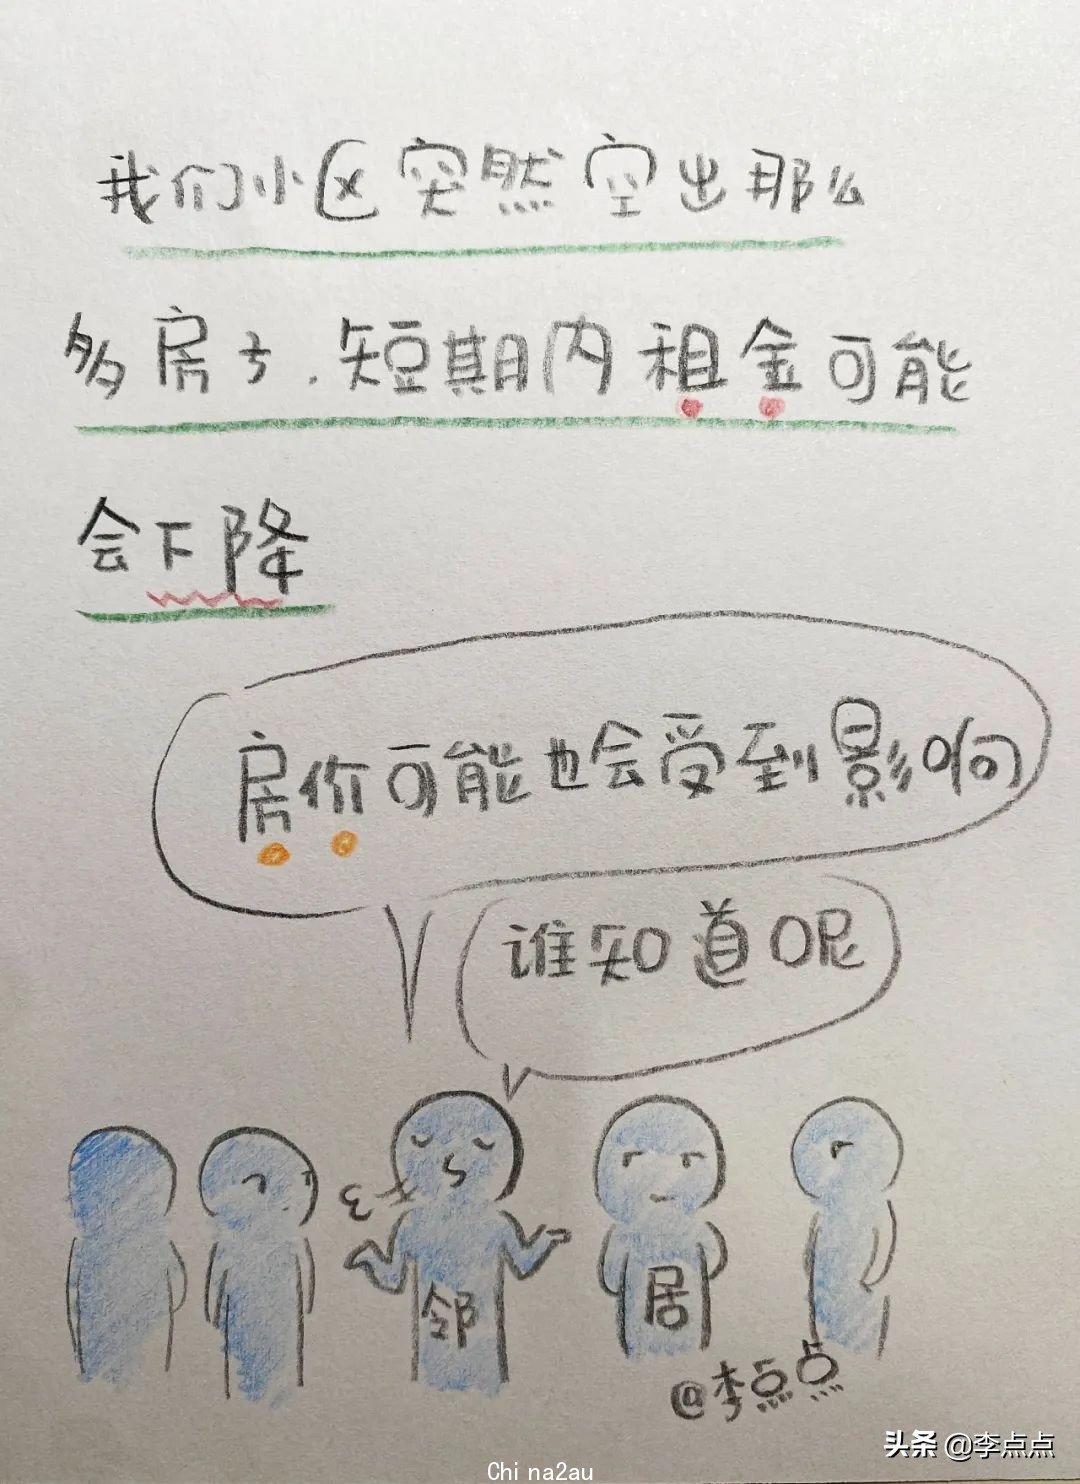 我们小区突然空出那么
多房子.短期内租金可能
会下降
房价可能也会受到影响
谁知道呢
邻
居
@李点点
头条 @李点点
Chi na2au